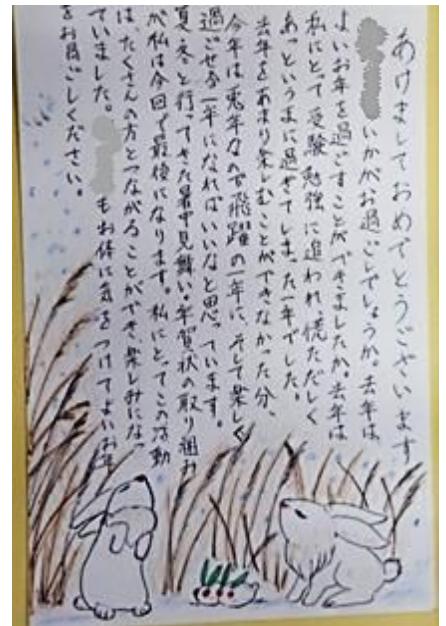 あけましておめでとうございます
いかがお過ごしでしょうか。去年は、
よいお年を過ごすことができましたか。去年は
私にとって受験勉強に追われ、慌ただしく
あっというまに過ぎてしまった一年でした。
去年をあまり楽しむことができなかった分、
今年は兎年なので飛躍の一年に、そして楽しく
過ごせる一年になればいいなと思っています。
夏・冬と行ってきた暑中見舞い・年賀状の取り組み
が私は今回で最後になります。私にとってこの活動
は、たくさんの方とつながることができ楽しみになっ
ていました。 もお体に気をつけてよいお年
をお過ごしください。